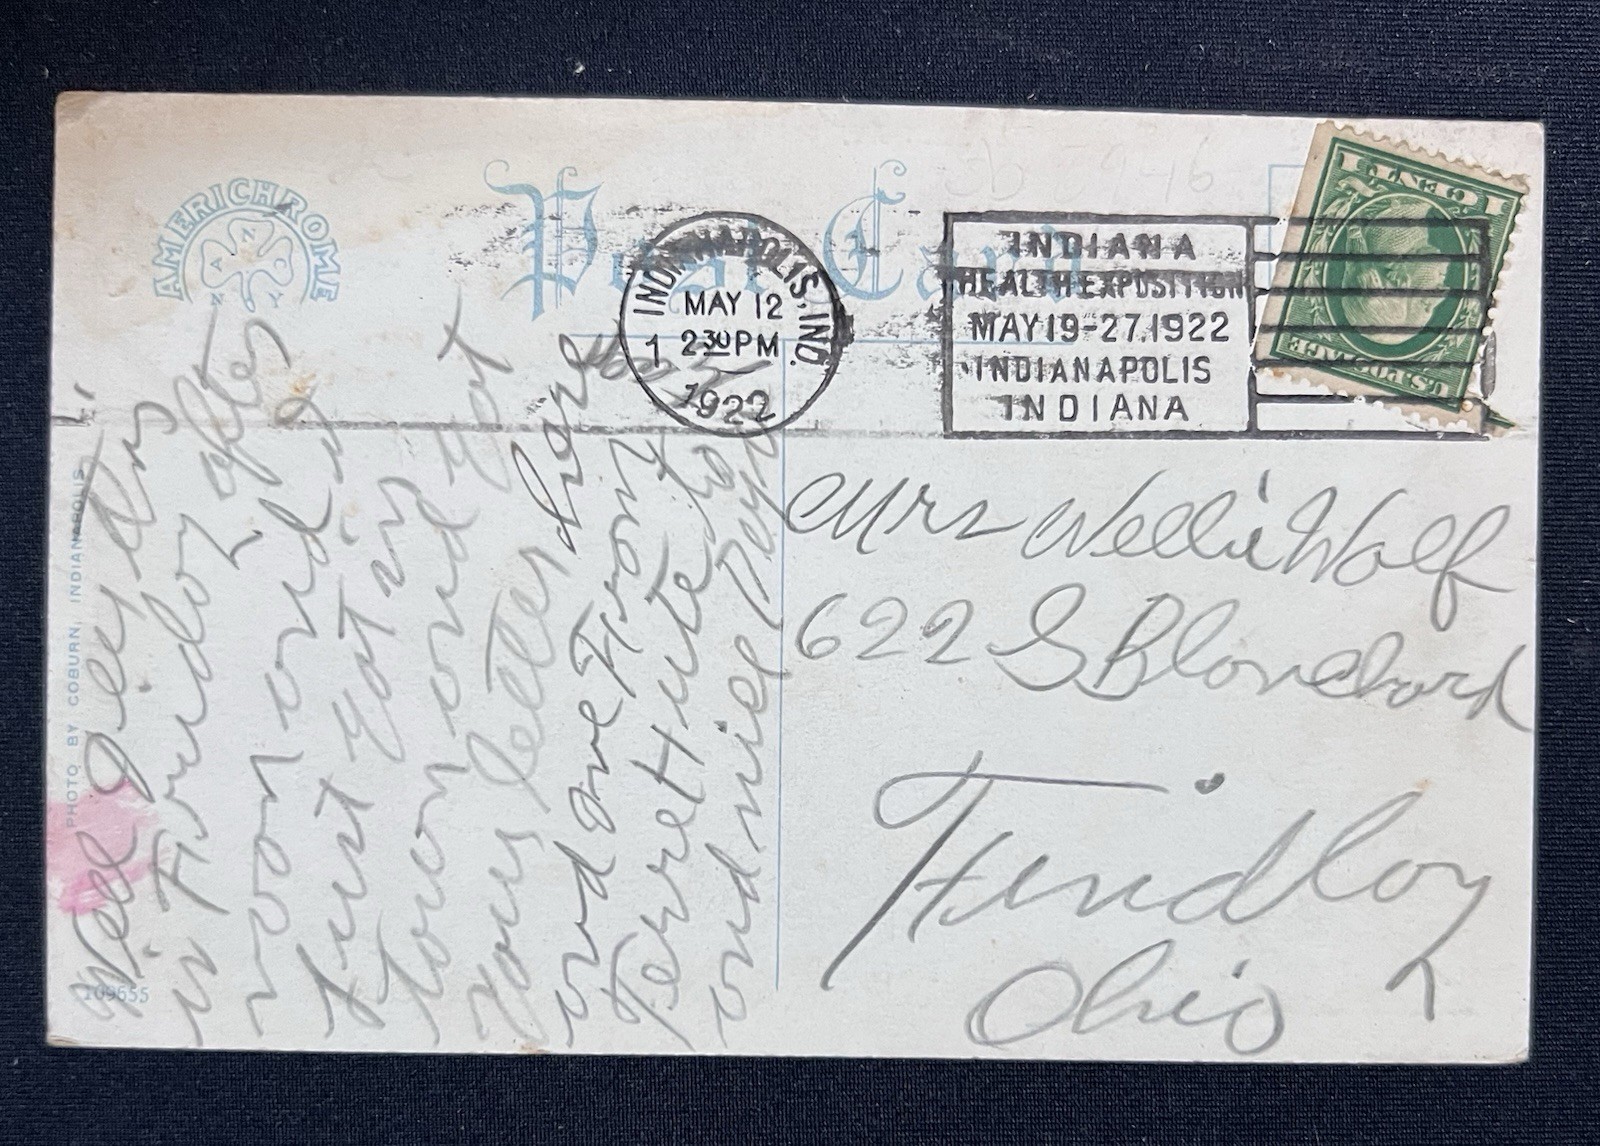 AMERICHROME
A N C O
N Y
Post Card
INDIANAPOLIS, IND.
MAY 12
1 2 30 PM
1922
INDIANA
HEALTH EXPOSITION
MAY 19-27, 1922
INDIANAPOLIS
INDIANA
1 CENT 1
U.S. POSTAGE
PHOTO BY COBURN, INDIANAPOLIS.
109655
Well Dily this
is Friday after
noon and
Just got in
town and got
your letter here
and one From
Terret Hute to
and will
Mrs Nellie Wolf
622 S Blanchard
Findlay
Ohio